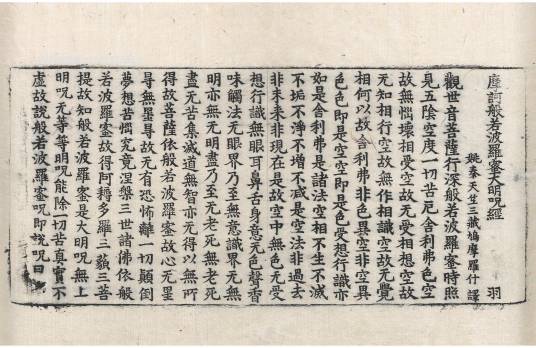 摩訶般若波羅蜜大明呪經 羽
姚秦天竺三藏鳩摩羅什譯
觀世音菩薩行深般若波羅蜜時照
見五陰空度一切苦厄舍利弗色空
故無惱壞相受空故无受相想空故
无知相行空故無作相識空故无覺
相何以故舍利弗非色異空非空異
色色即是空空即是色受想行識亦
如是舍利弗是諸法空相不生不滅
不垢不淨不增不減是空法非過去
非未來非現在是故空中無色无受
想行識無眼耳鼻舌身意无色聲香
味觸法无眼界乃至無意識界无無
明亦無无明盡乃至无老死無老死
盡无苦集滅道無智亦无得以無所
得故菩薩依般若波羅蜜故心无罣
㝵無罣㝵故无有恐怖離一切顛倒
夢想苦惱究竟涅槃三世諸佛依般
若波羅蜜故得阿耨多羅三藐三菩
提故知般若波羅蜜是大明呪無上
明呪无等等明呪能除一切苦真實不
虛故說般若波羅蜜呪即說呪曰